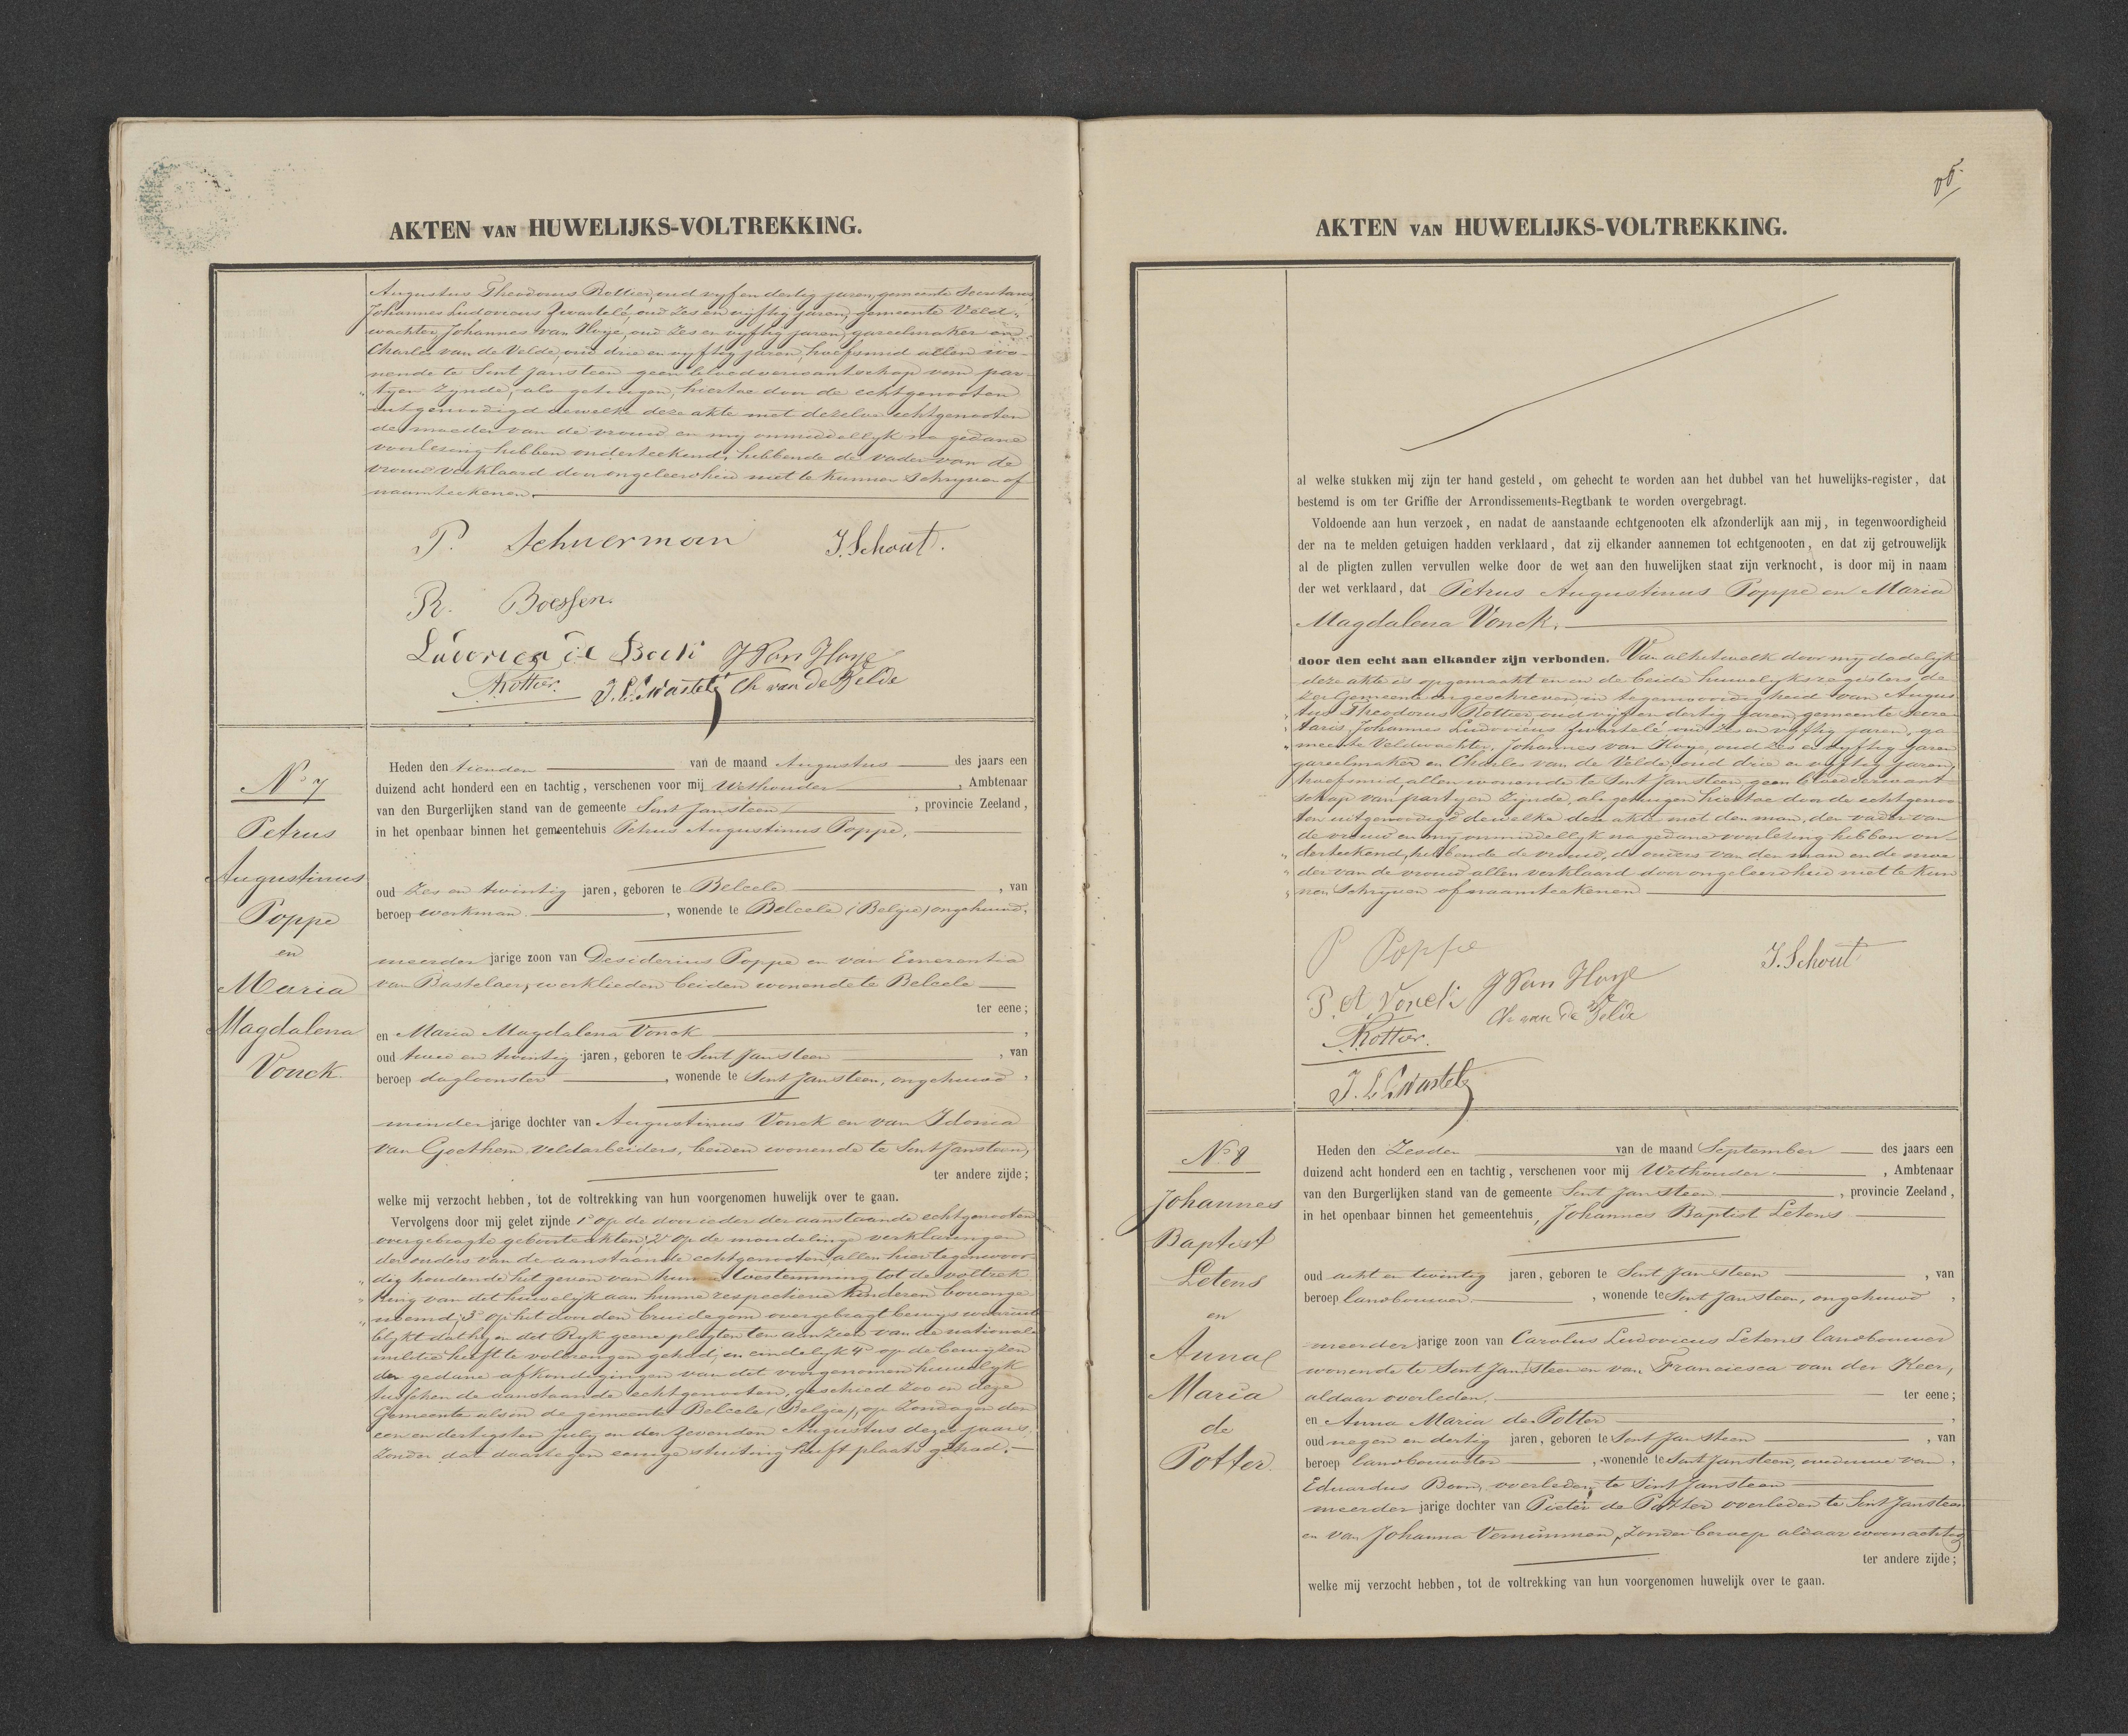 AKTEN VAN HUWELIJKS-VOLTREKKING.
Augustus Theodorus Rottier, oud vyf en dertig jaren, gemeente Secretaris,
Johannes Ludovicus Zwartelé, oud zes en vyftig jaren, gemeente Veld-
wachter, Johannes van Hoye, oud zes en vyftig jaren, gareelmaker en
Charles van de Velde, oud drie en vyftig jaren, hoefsmid allen wo-
nende te Sent Jansteen geen bloedverwantschap van par-
„ tyen zynde, als getuigen, hiertoe door de echtgenooten
uitgenoodigd dewelke deze akte met dezelve echtgenooten
de moeder van de vrouw en my onmiddellyk na gedane
voorlezing hebben onderteekend, hebbende de vader van de
vrouw verklaard door ongeleerdheid niet te kunnen schryven of
naamteekenen.
P. Schuerman
J. Schout.
R. Boessen.
J Van Hoye
Rottier.
Ch van de Velde
No 7
Petrus
Augustinus
Poppe
en
Maria
Magdalena
Vonck.
Heden den tienden van de maand Augustus des jaars een
duizend acht honderd een en tachtig, verschenen voor mij Wethouder, Ambtenaar
van den Burgerlijken stand van de gemeente Sent Jansteen, provincie Zeeland,
in het openbaar binnen het gemeentehuis Petrus Augustinus Poppe,
oud zes en twintig jaren, geboren te Belcele, van
beroep werkman, wonende te Belcele (Belgie) ongehuwd,
meerder jarige zoon van Desiderius Poppe en van Emerentia
van Bastelaer, werklieden beiden wonende te Belcele
ter eene;
en Maria Magdalena Vonck,
oud twee en twintig jaren, geboren te Sent Jansteen, van
beroep dagloonster, wonende te Sent Jansteen, ongehuwd,
minder jarige dochter van Augustinus Vonck en van Idonia
van Goethem veldarbeiders, beiden wonende te Sent Jansteen,
ter andere zijde;
welke mij verzocht hebben, tot de voltrekking van hun voorgenomen huwelijk over te gaan.
Vervolgens door mij gelet zijnde 1o op de door ieder der aanstaande echtgenooten
overgebragte geboorteakten; 2o op de mondelinge verklaringen
der ouders van de aanstaande echtgenooten allen hier tegenwoor-
„ dig houdende het geven van hunne toestemming tot de voltrek-
„ king van dit huwelijk aan hunne respectieve kinderen bovenge-
„ noemd; 3o op het door den bruidegom overgebragt bewys waaruit
blykt dat hy en dit Ryk geene plagten ten aanzien van de nationale
militie heeft te volbrengen gehad; en eindelyk 4o op de bewyzen
der gedane afkondigingen van dit voorgenomen huwelyk
tusschen de aanstaande echtgenooten, geschied zoo in deze
Gemeente als in de gemeente Belcele (Belgie), op Zondagen den
een en dertigsten July en den zevenden Augustus dezes jaars,
zonder dat daartegen eenige stuiting heeft plaats gehad.
AKTEN VAN HUWELIJKS-VOLTREKKING.
al welke stukken mij zijn ter hand gesteld, om gehecht te worden aan het dubbel van het huwelijks-register, dat
bestemd is om ter Griffie der Arrondissements-Regtbank te worden overgebragt.
Voldoende aan hun verzoek, en nadat de aanstaande echtgenooten elk afzonderlijk aan mij, in tegenwoordigheid
der na te melden getuigen hadden verklaard, dat zij elkander aannemen tot echtgenooten, en dat zij getrouwelijk
al de pligten zullen vervullen welke door de wet aan den huwelijken staat zijn verknocht, is door mij in naam
der wet verklaard, dat Petrus Augustinus Poppe en Maria
Magdalena Vonck.
door den echt aan elkander zijn verbonden. Van al hetwelk door my dadelyk
deze akte is opgemaakt en in de beide huwelyksregisters de-
zer Gemeente ingeschreven, in tegenwoordigheid van Augus-
„ tus Theodorus Rottier, oud vyf en dertig jaren, gemeente Secre-
„ taris, Johannes Ludovicus Zwartelé oud zes en vyftig jaren, ge-
„ meente Veldwachter, Johannes van Hoye, oud zes en vyftig jaren
gareelmaker en Charles van de Velde, oud drie en vyftig jaren,
hoefsmid, allen wonende te Sent Jansteen, geen bloedverwant-
schap van partyen zynde, als getuigen hiertoe door de echtgenoo-
ten uitgenoodigd dewelke deze akte met den man, den vader van
de vrouw en my onmiddellyk na gedane voorlezing hebben on-
„ derteekend, hebbende de vrouw, de ouders van den man en de moe-
„ der van de vrouw allen verklaard door ongeleerdheid niet te kun-
„ nen schryven of naamteekenen
P Poppe
J. Schout
J Van Hoye
P. A. Vonck
Ch van de Velde
Rottier.
No 8
Johannes
Baptist
Letens
en
Anna
Maria
de
Potter.
Heden den Zesden van de maand September des jaars een
duizend acht honderd een en tachtig, verschenen voor mij Wethouder, Ambtenaar
van den Burgerlijken stand van de gemeente Sent Jansteen, provincie Zeeland,
in het openbaar binnen het gemeentehuis, Johannes Baptist Letens
oud acht en twintig jaren, geboren te Sent Jansteen, van
beroep landbouwer, wonende te Sent Jansteen, ongehuwd,
meerder jarige zoon van Carolus Ludovicus Letens landbouwer
wonende te Sent Jansteen en van Franciesca van der Keer,
aldaar overleden, ter eene;
en Anna Maria de Potter,
oud negen en dertig jaren, geboren te Sent Jansteen, van
beroep landbouwster, wonende te Sent Jansteen, weduwe van,
Eduardus Boon, overleden te Sent Jansteen
meerder jarige dochter van Pieter de Potter overleden te Sent Jansteen
en van Johanna Vernimmen, zonder beroep aldaar woonachtig
ter andere zijde;
welke mij verzocht hebben, tot de voltrekking van hun voorgenomen huwelijk over te gaan.